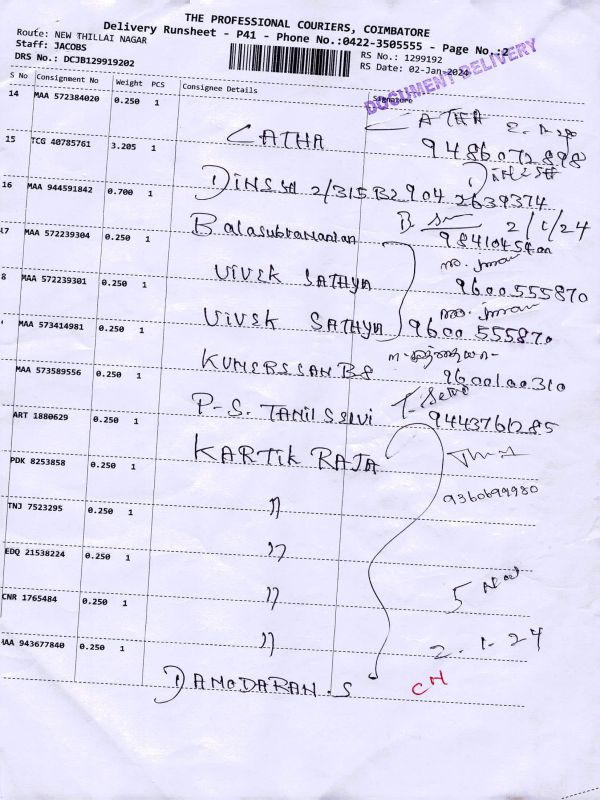 THE PROFESSIONAL COURIERS, COIMBATORE
Delivery Runsheet - P41 - Phone No.:0422-3505555 - Page No.:2
Route: NEW THILLAI NAGAR
Staff: JACOBS
DRS No.: DCJB129919202
RS No.: 1299192
RS Date: 02-Jan-2024
DOCUMENT DELIVERY
S No Consignment No Weight PCS Consignee Details Signature
14 MAA 572384020 0.250 1 LATHA LATHA
15 TCG 40785761 3.205 1 9486072898
DINESH 2/315 B2 904 2639374
16 MAA 944591842 0.700 1 Balasubramanian 2/1/24
17 MAA 572239304 0.250 1
VIVEK SATHYA 9600555870
8 MAA 572239301 0.250 1
VIVEK SATHYA 9600 555870
MAA 573414981 0.250 1
KUMERESSAN BS 9600100310
MAA 573589556 0.250 1
P-S. TAMILSELVI 9443761285
ART 1880629 0.250 1 KARTIK RAJA
PDK 8253858 0.250 1 9360699980
〃
TNJ 7523295 0.250 1
〃
EDQ 21538224 0.250 1
〃 5
CNR 1765484 0.250 1
〃 2.1.24
AA 943677840 0.250 1
DAMODARAN.S